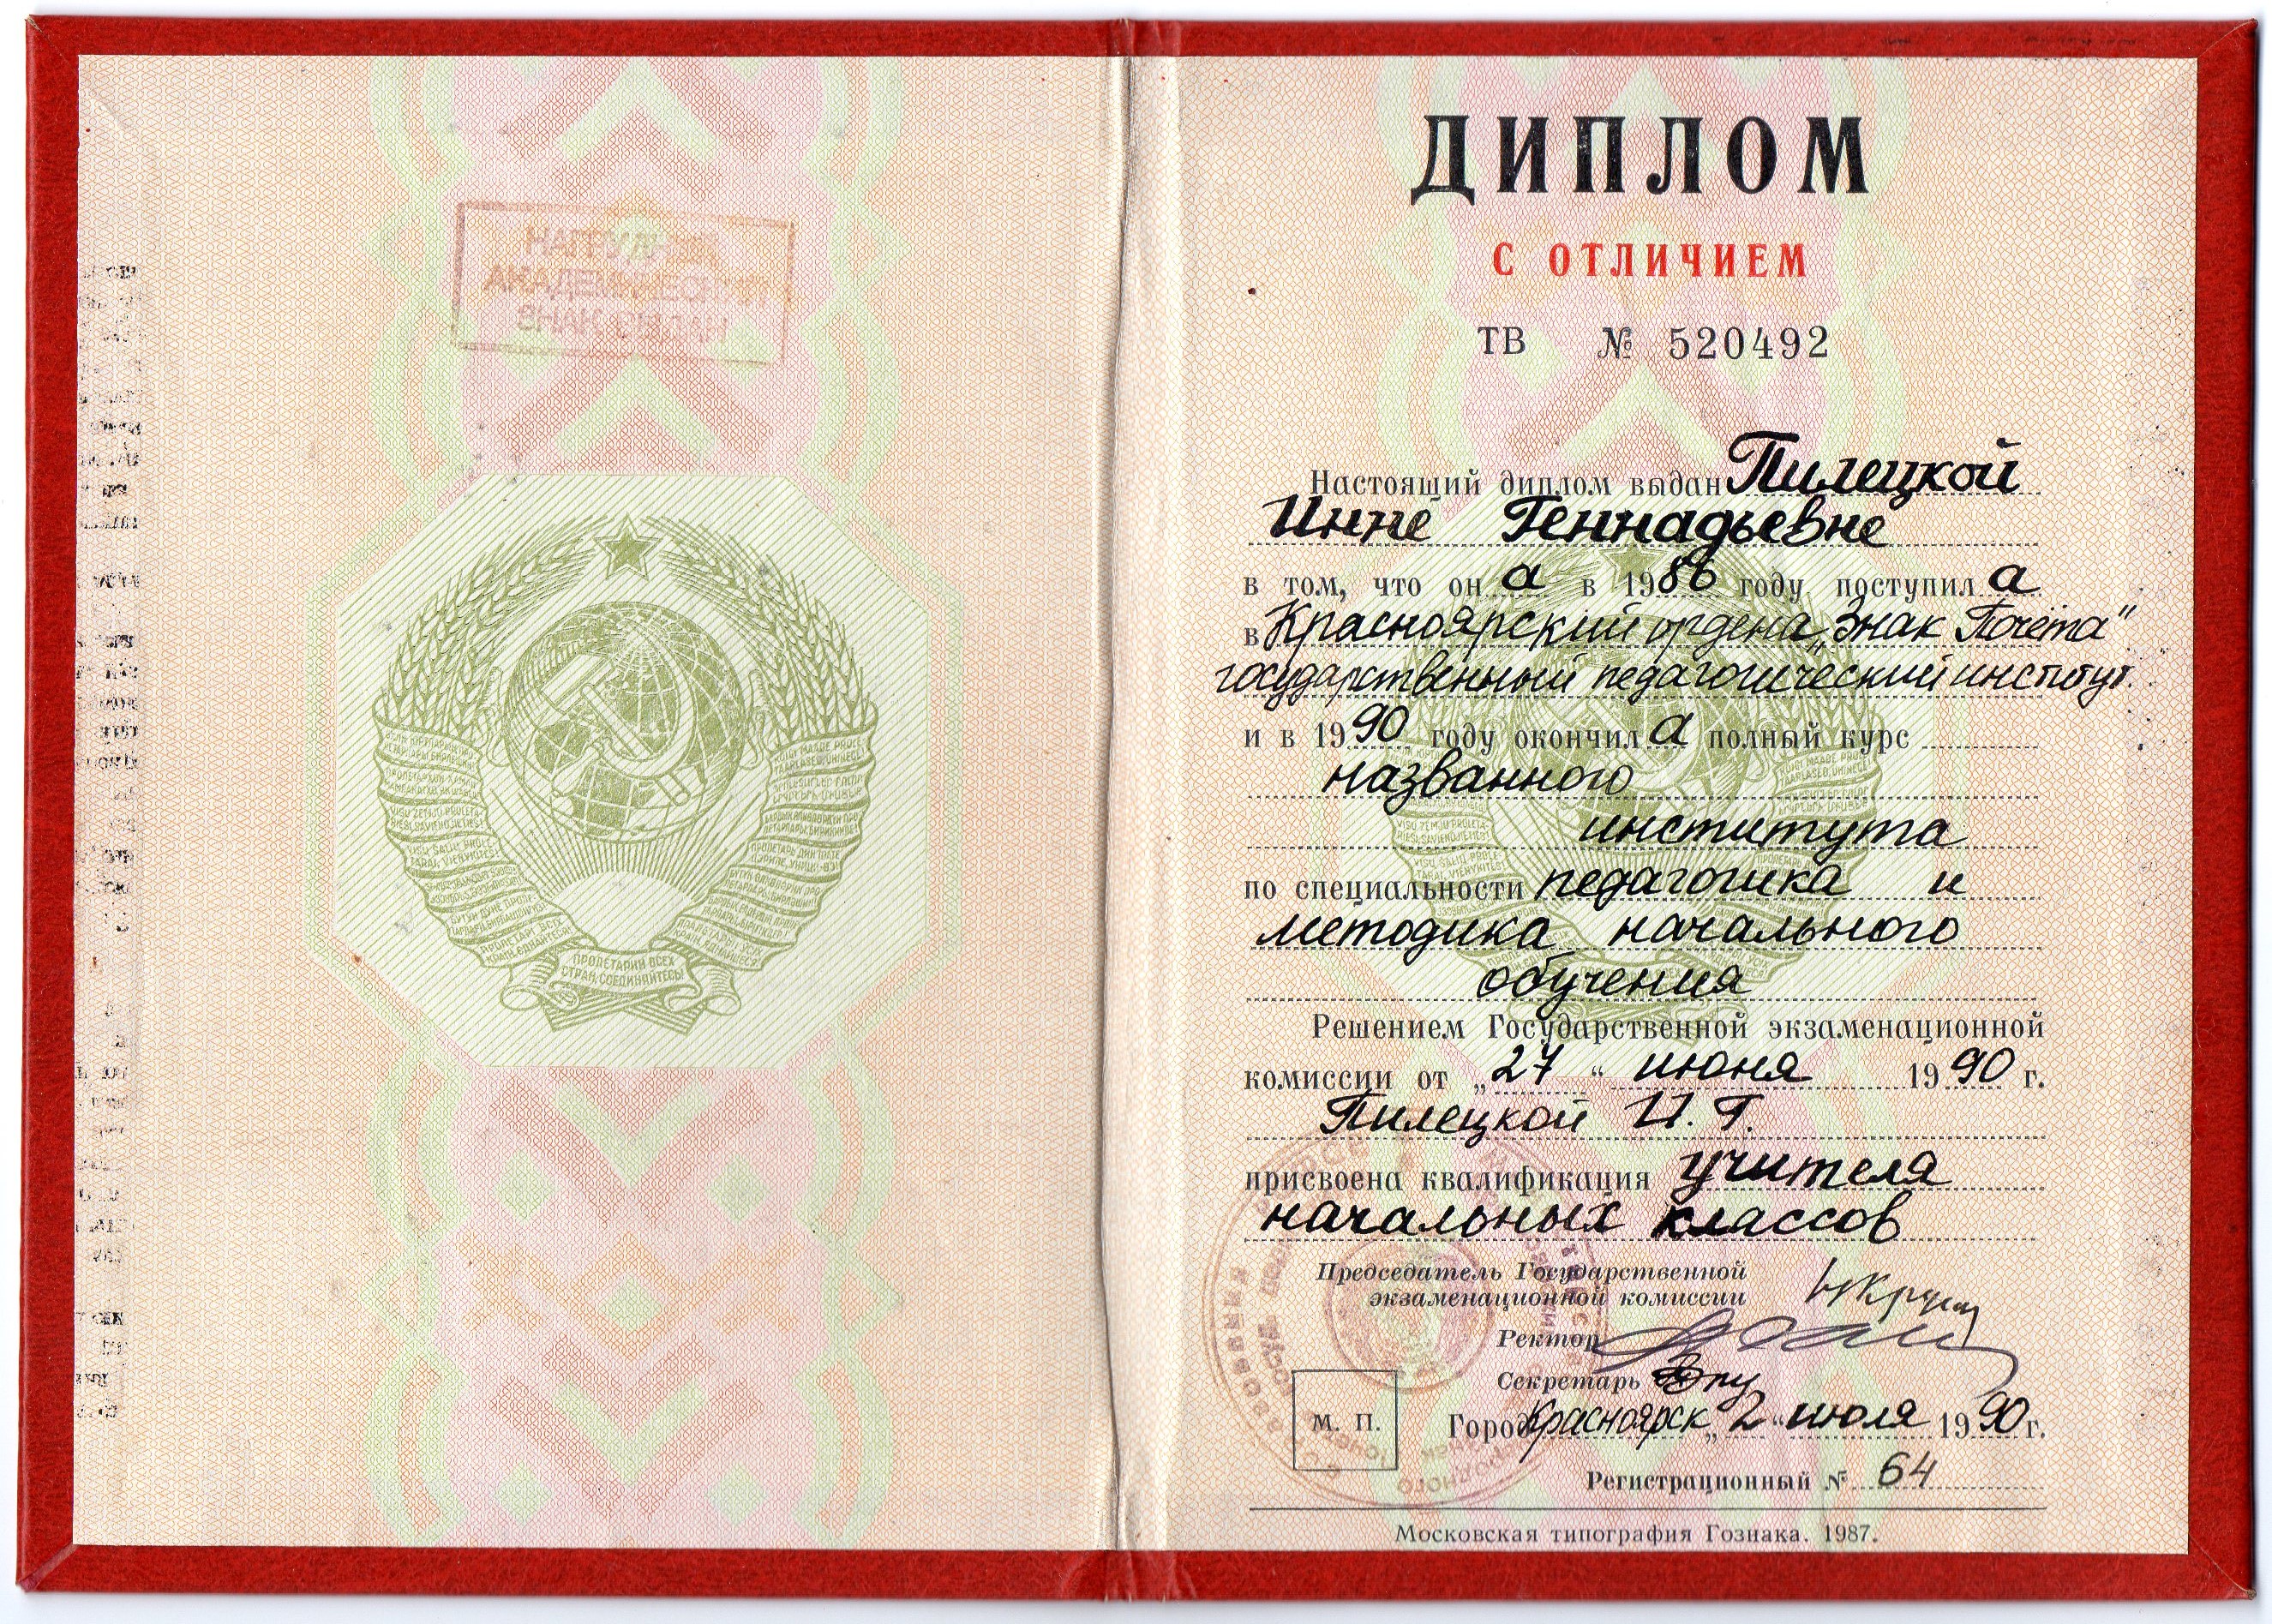 НАГРУДНЫЙ
АКАДЕМИЧЕСКИЙ
ЗНАК ВЫДАН
ПРОЛЕТАРИИ ВСЕХ
СТРАН, СОЕДИНЯЙТЕСЬ!
ДИПЛОМ
С ОТЛИЧИЕМ
ТВ № 520492
Настоящий диплом выдан Пилецкой
Инне Геннадьевне
в том, что он а в 1986 году поступил а
в Красноярский ордена „Знак Почёта"
государственный педагогический институт
и в 1990 году окончил а полный курс
названного
института
по специальности педагогика и
методика начального
обучения
Решением Государственной экзаменационной
комиссии от „27" июня 1990 г.
Пилецкой И. Г.
присвоена квалификация учителя
начальных классов
Председатель Государственной
экзаменационной комиссии
Ректор
Секретарь
М. П.
Город Красноярск „2" июля 1990 г.
Регистрационный № 64
Московская типография Гознака. 1987.